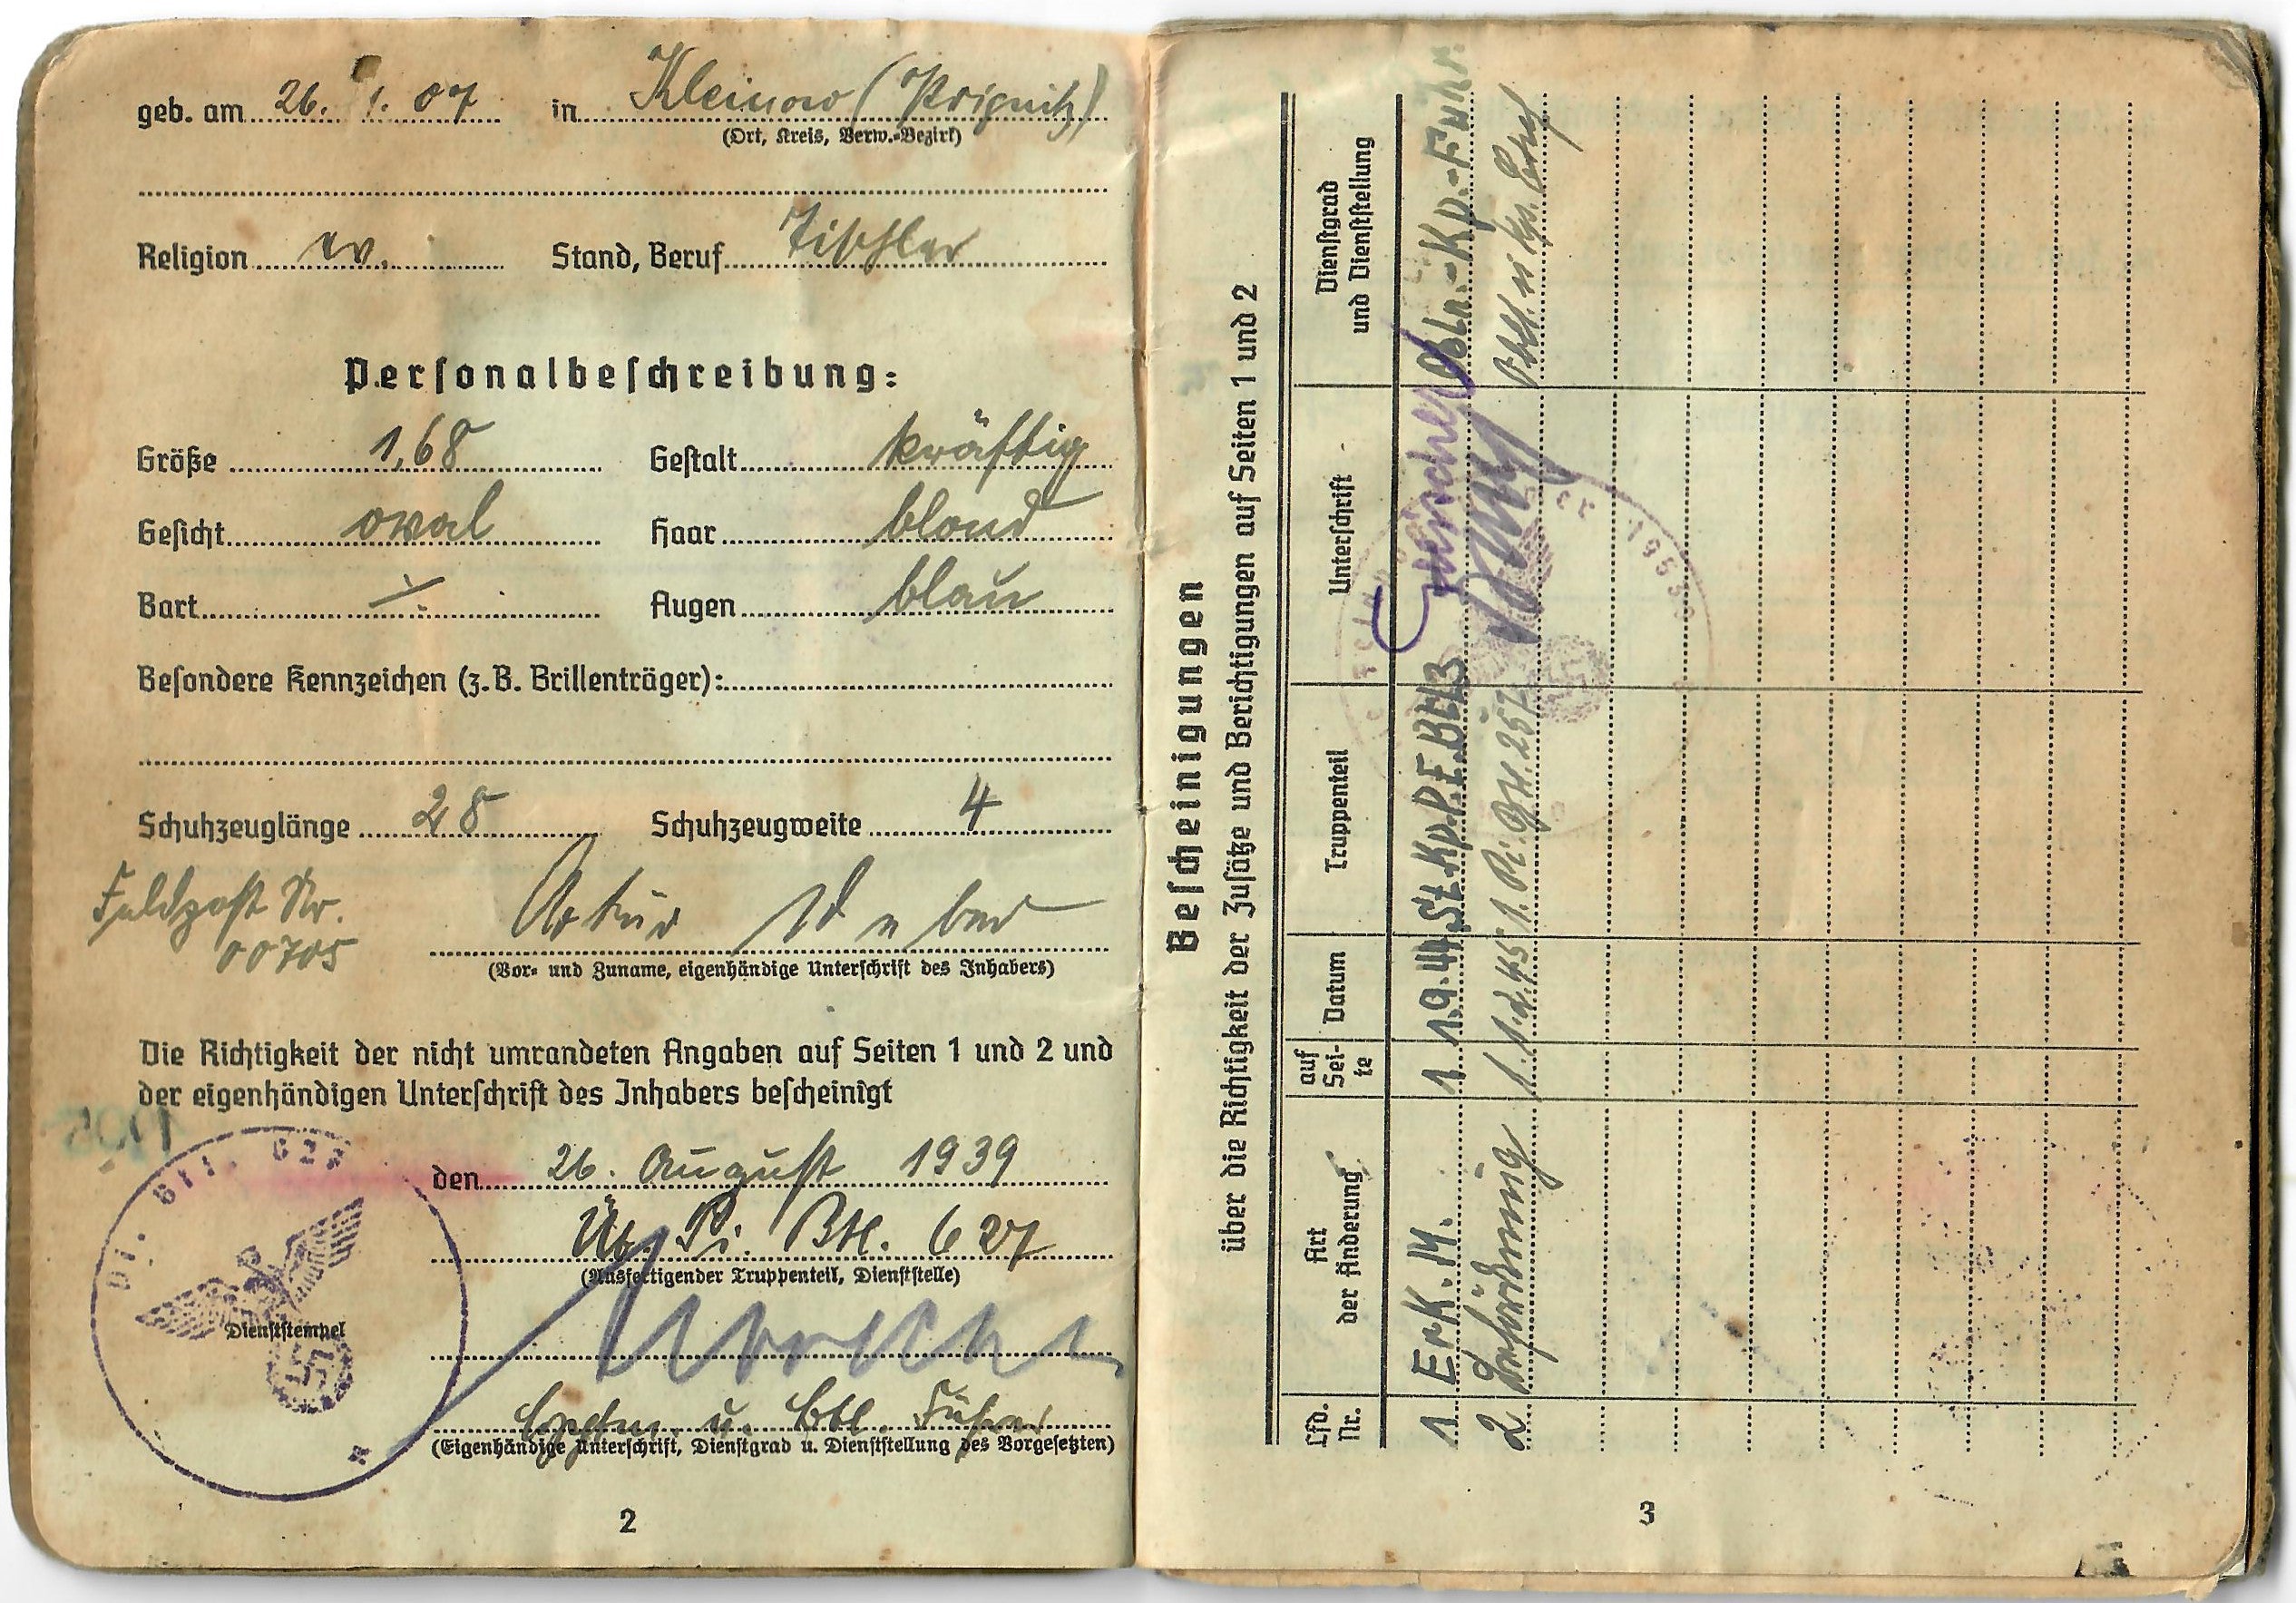 geb. am 26. 1. 07 in Kleinow (Prignitz)
(Ort, Kreis, Verw.-Bezirk)
Religion ev. Stand, Beruf Tischler
Personalbeschreibung:
Größe 1,68 Gestalt kräftig
Gesicht oval Haar blond
Bart Augen blau
Besondere Kennzeichen (z. B. Brillenträger):
Schuhzeuglänge 28 Schuhzeugweite 4
Feldpost Nr.
00705
Artur Weber
(Vor- und Zuname, eigenhändige Unterschrift des Inhabers)
Die Richtigkeit der nicht umrandeten Angaben auf Seiten 1 und 2 und
der eigenhändigen Unterschrift des Inhabers bescheinigt
den 26. August 1939
Üb. Pi. Btl. 627
(Ausfertigender Truppenteil, Dienststelle)
Dienststempel
Hptm. u. Btl. Führer
(Eigenhändige Unterschrift, Dienstgrad u. Dienststellung des Vorgesetzten)
2
Bescheinigungen
über die Richtigkeit der Zusätze und Berichtigungen auf Seiten 1 und 2
Lfd. Nr. Art der Änderung auf Sei-te Datum Truppenteil Unterschrift Dienstgrad und Dienststellung
1 Erk.M. 1 1.9.44 St.Kp.P.E.Btl.3 Obln.-Kp.-Führ.
2 Beförderung 1 1. Pi. 257
3